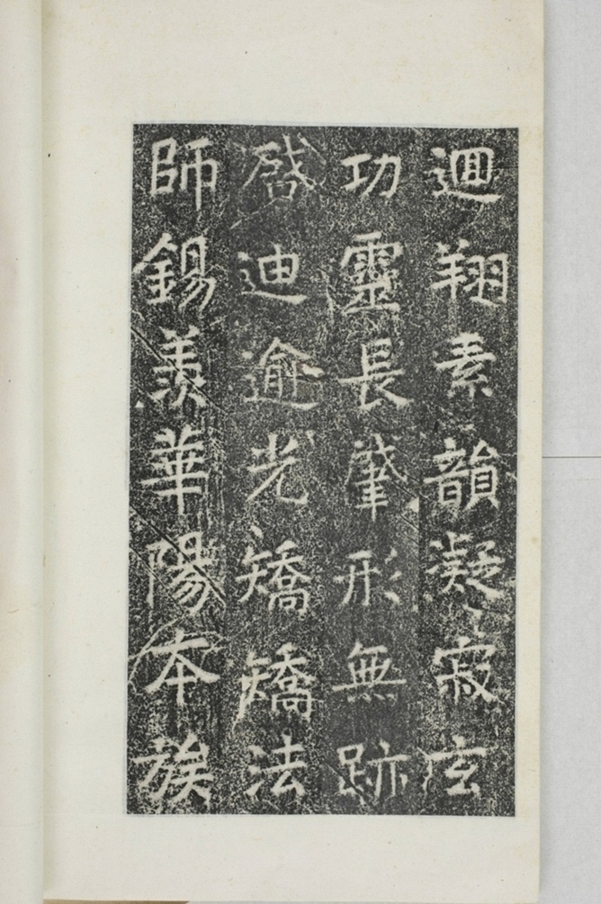 迴翔素韻凝寂玄
功靈長肇形無跡
啓迪逾光矯矯法
師錫羨華陽本族